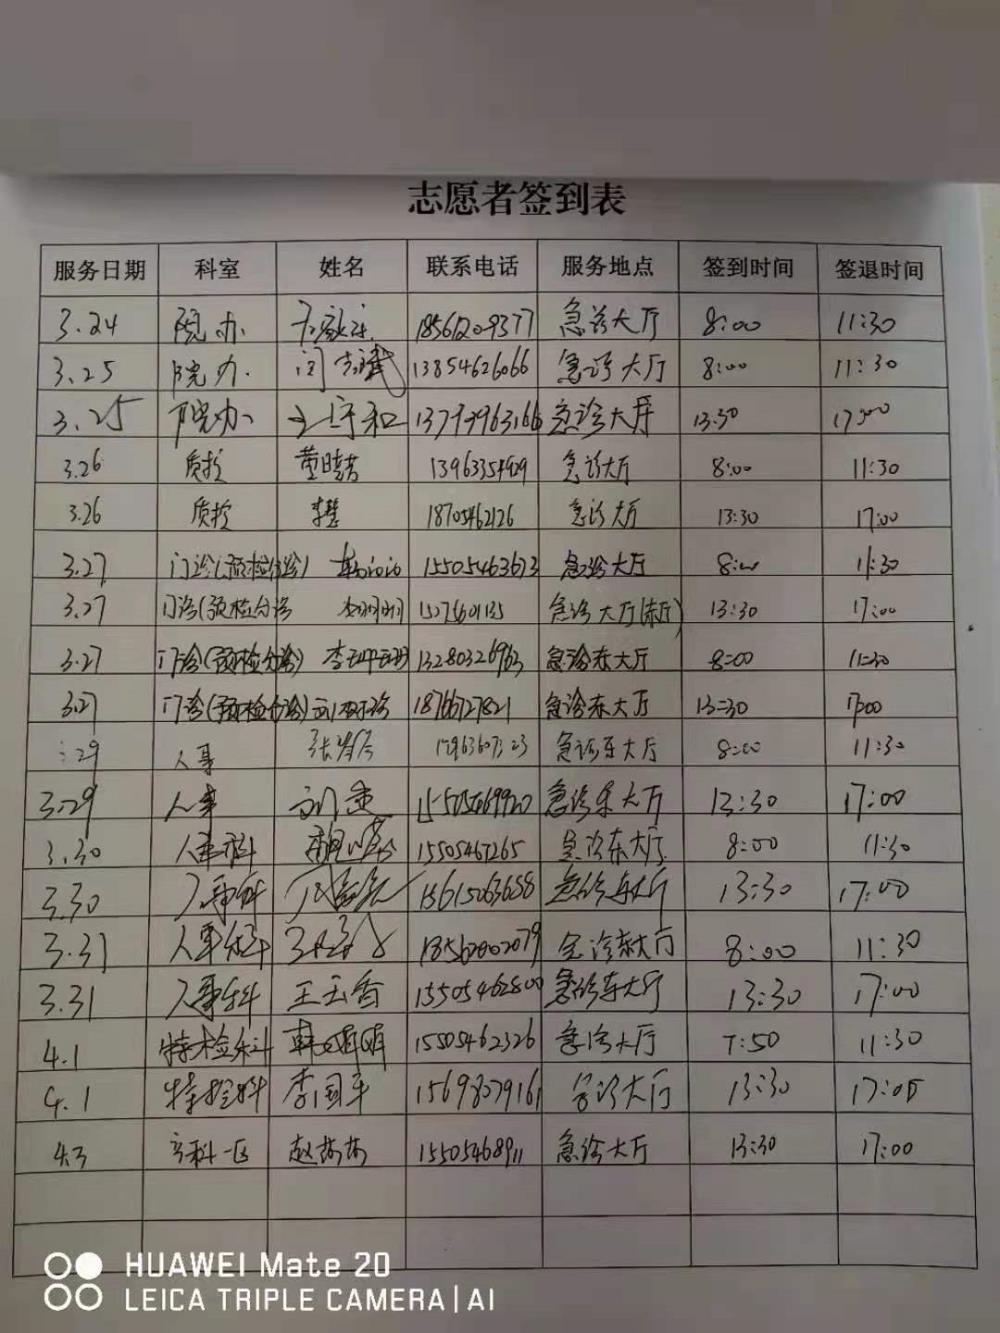 志愿者签到表
服务日期 科室 姓名 联系电话 服务地点 签到时间 签退时间
3.24 院办 18561209377 急诊大厅 8:00 11:30
3.25 院办. 13854626066 急诊大厅 8:00 11:30
3.25 院办 王守和 急诊大厅 13:30 17:00
3.26 质控 急诊大厅 8:00 11:30
3.26 质控 李慧 18705462126 急诊大厅 13:30 17:00
3.27 门诊(预检分诊) 15505463673 急诊大厅 8:00 11:30
3.27 门诊(预检分诊 急诊大厅(东厅) 13:30 17:00
3.27 门诊(预检分诊) 13280326963 急诊东大厅 8:00 11:30
3.27 门诊(预检分诊) 18766727821 急诊东大厅 13:30 17:00
29 人事 急诊东大厅 8:00 11:30
3.29 人事 急诊东大厅 13:30 17:00
3.30 人事科 15505467265 急诊东大厅 8:00 11:30
3.30 人事科 15615063658 急诊东大厅 13:30 17:00
3.31 人事科 18562002079 急诊东大厅 8:00 11:30
3.31 人事科 王云香 15505462800 急诊东大厅 13:30 17:00
4.1 特检科 韩明明 15505462326 急诊大厅 7:50 11:30
4.1 特检科 李国军 15698079161 急诊大厅 13:30 17:05
4.3 产科一区 赵苏苏 15505468911 急诊大厅 13:30 17:00
HUAWEI Mate 20
LEICA TRIPLE CAMERA | AI